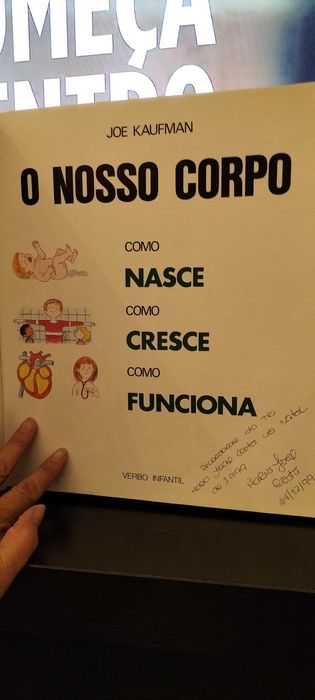 OMEÇA
ENTRO
JOE KAUFMAN
O NOSSO CORPO
COMO
NASCE
COMO
CRESCE
COMO
FUNCIONA
VERBO INFANTIL
do tio
João Costa no Natal
de 1999.
Costa
24/12/99